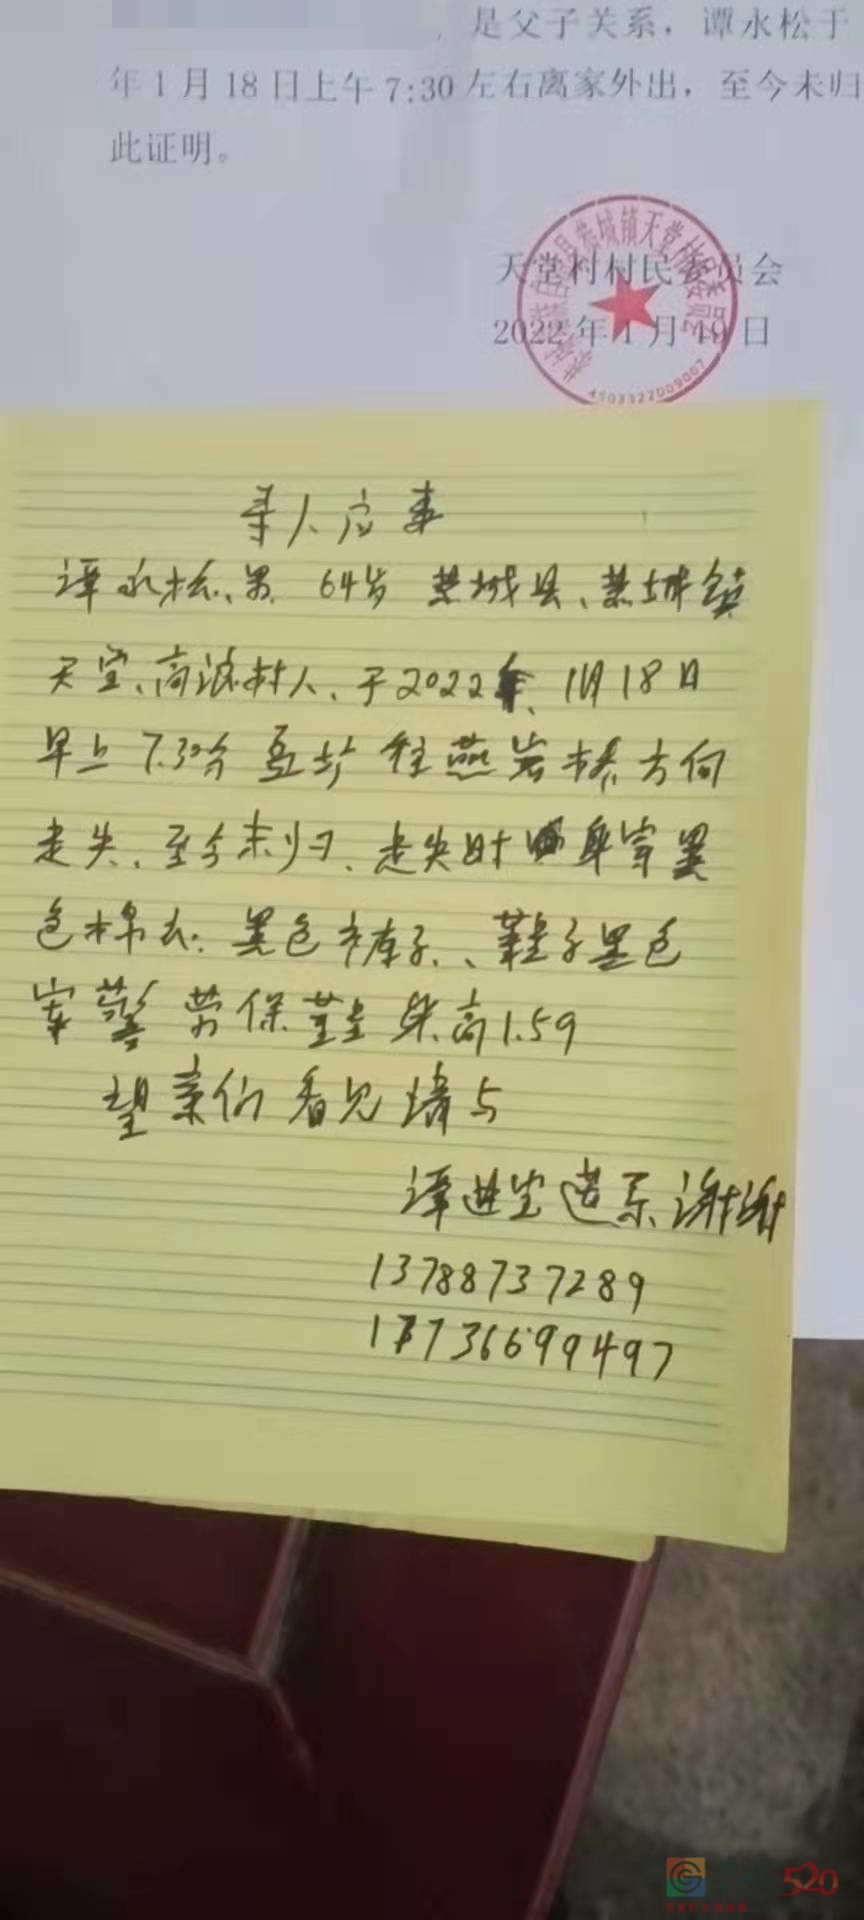 是父子关系，谭永松于
年1月18日上午7:30左右离家外出，至今未归
此证明。
天堂村村民委员会
2022年1月19日
4503322009007
寻人应事
谭永松、男 64岁 恭城县、恭城镇
天堂、高浪村人、于2022年、1月18日
早上7.30分 豆步 往燕岩桥方向
走失、至今未归、走失时 身穿黑
色棉衣、黑色裤子、鞋子黑色
警劳保鞋 身高1.59
望亲们看见请与
谭进宝 联系 谢谢
13788737289
17736699497
520